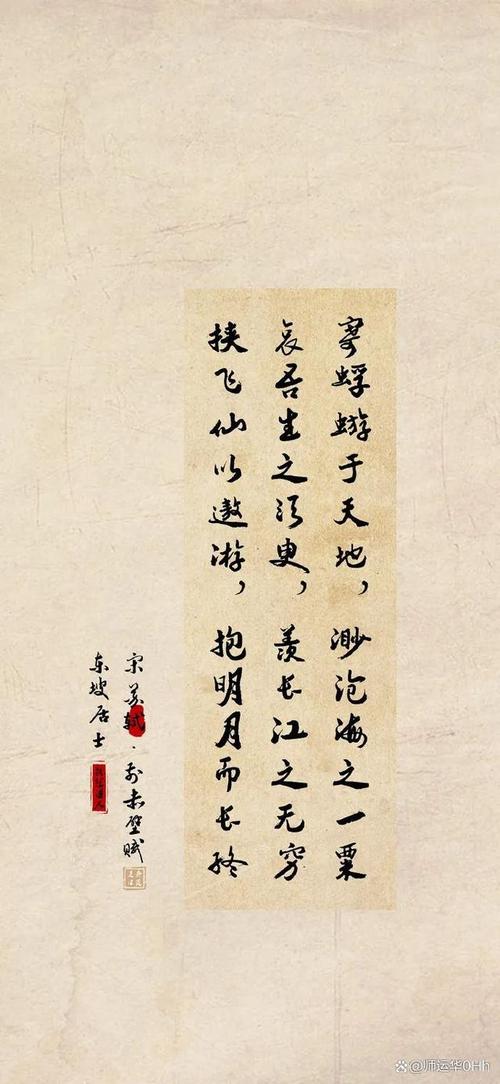 寄蜉蝣于天地，渺沧海之一粟
哀吾生之须臾，羡长江之无穷
挟飞仙以遨游，抱明月而长终
宋 苏轼·前赤壁赋
东坡居士
@师运华0Hh